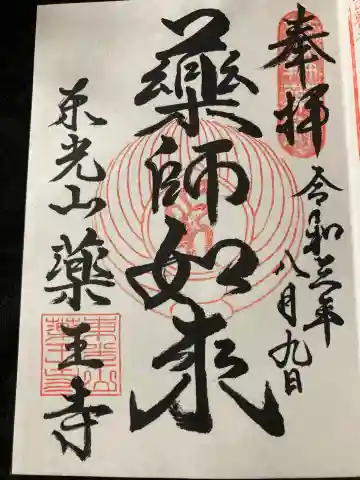 奉拝
令和三年
八月九日
藥師如来
东光山 薬王寺